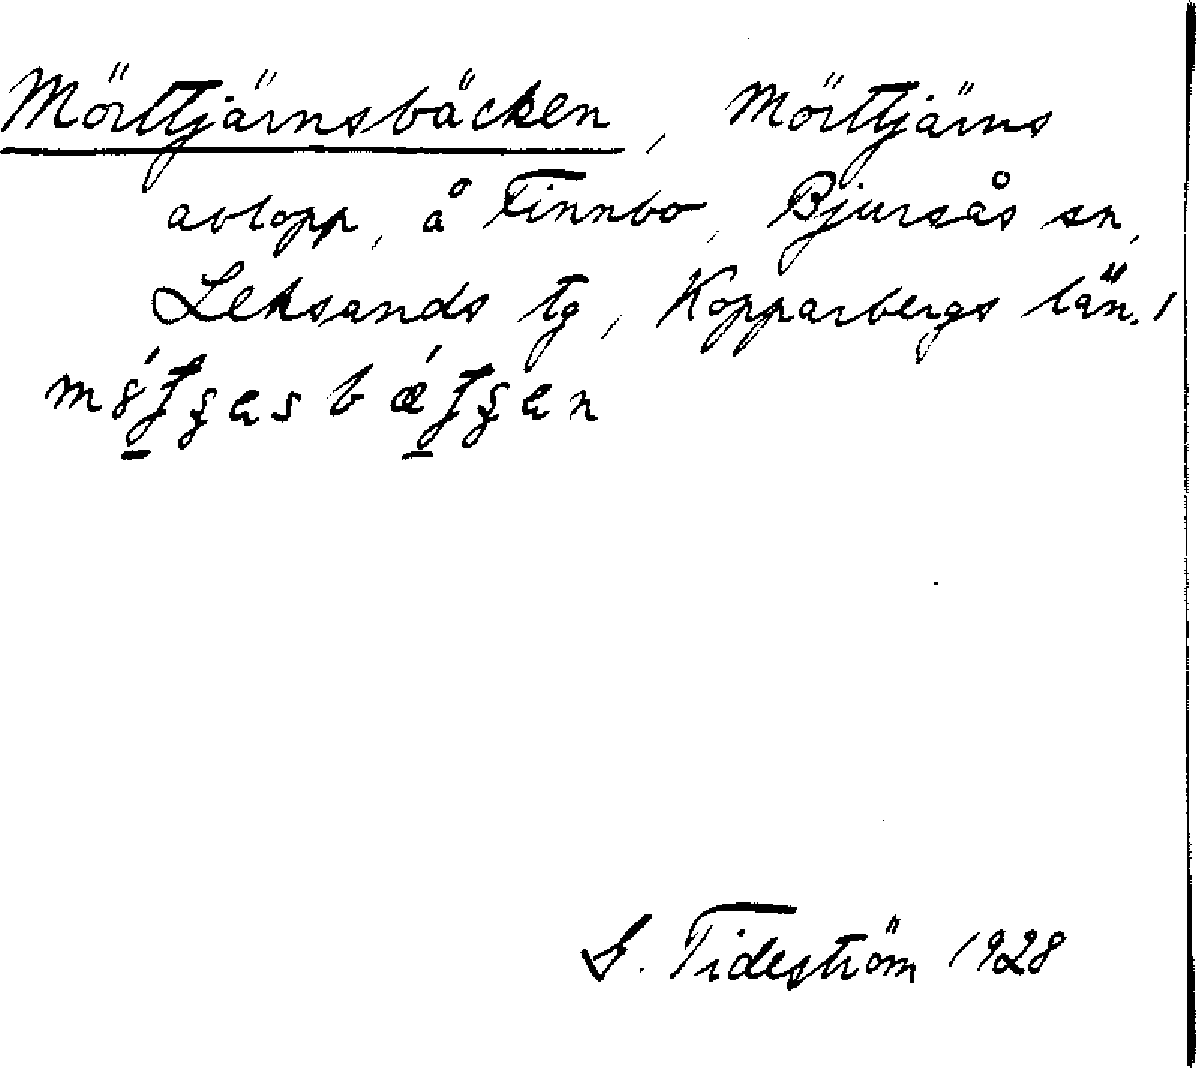 Mörttjärnsbäcken, Mörttjärns
avlopp, å Finnbo, Bjursås sn,
Leksands tg, Kopparbergs län.
G. Tideström 1928